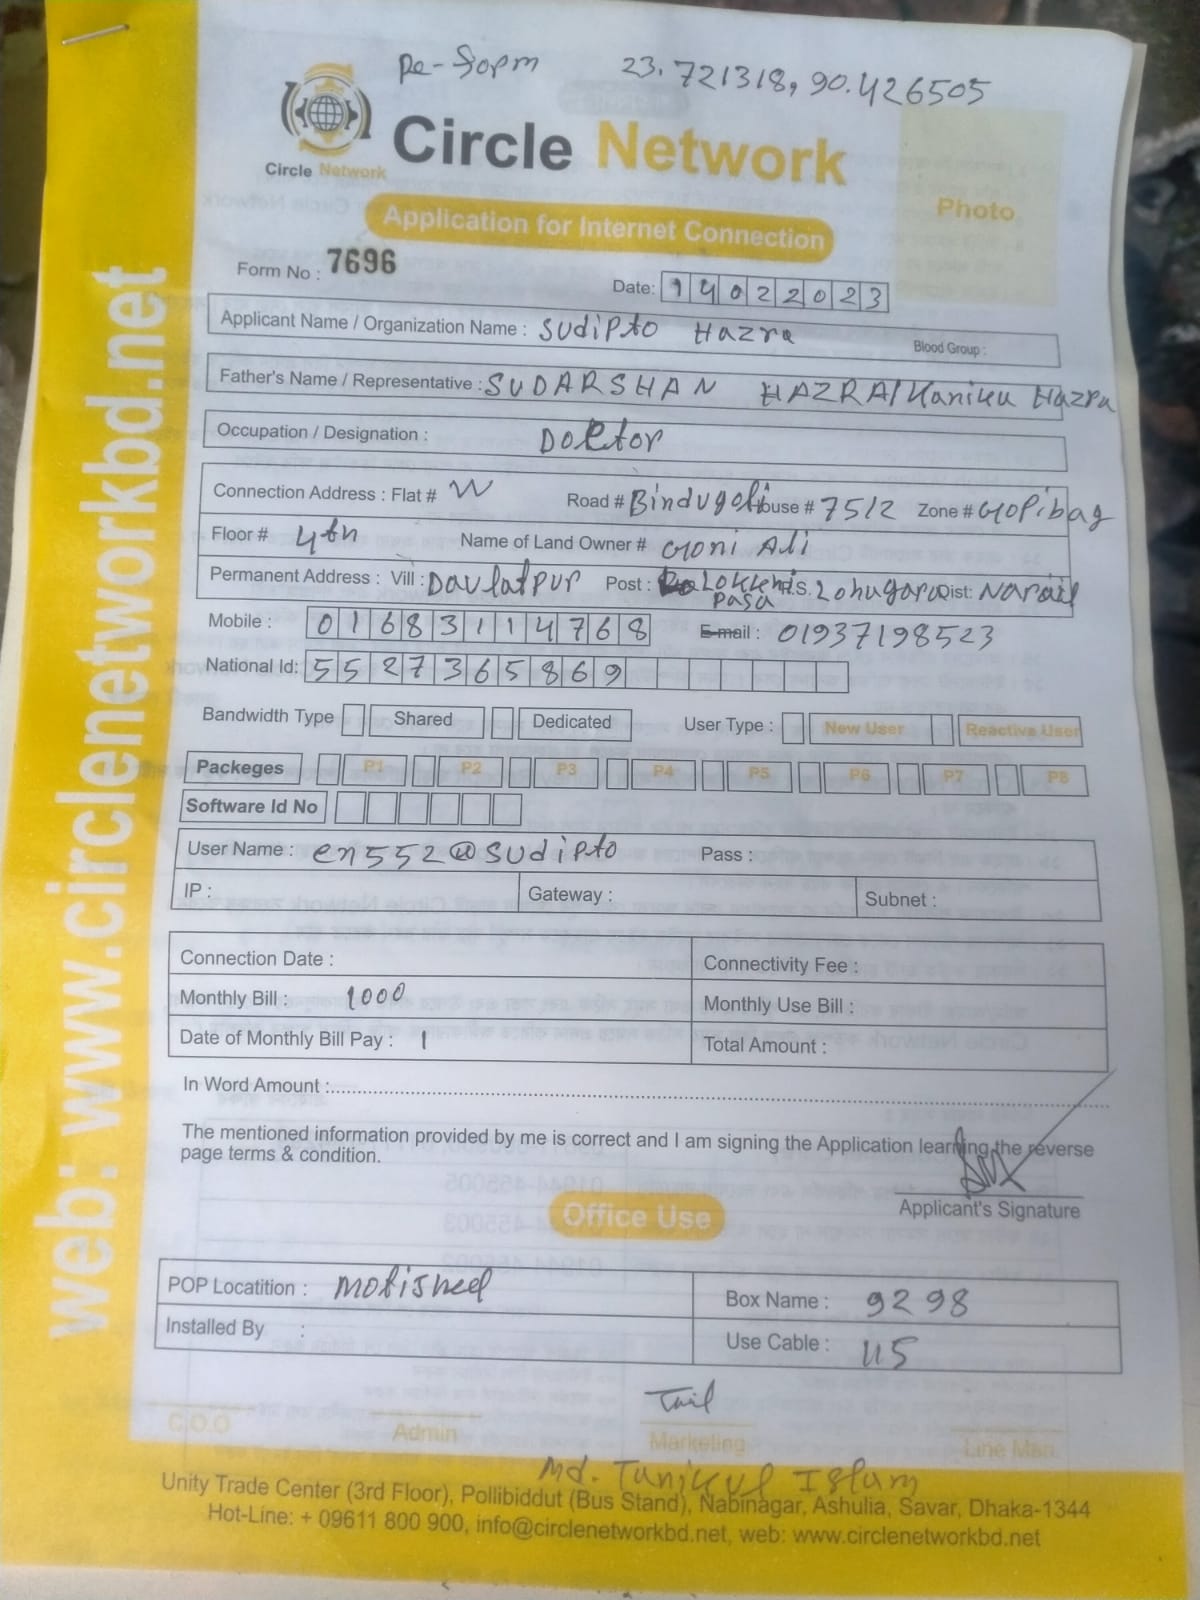 Re-Form 23.721318, 90.426505
Circle Network
Circle Network
Photo
Application for Internet Connection
Form No : 7696
Date: 14022023
Applicant Name / Organization Name : Sudipto Hazra Blood Group :
Father's Name / Representative : SUDARSHAN HAZRA/Kanika Hazra
Occupation / Designation : Doctor
Connection Address : Flat # W Road # Bindugoli House # 75/2 Zone # Gopibag
Floor # 4th Name of Land Owner # Goni Ali
Permanent Address : Vill : Daulatpur Post : Lokkhi pasa P.S. Lohugara Dist: Narail
Mobile : 01683114768 E-mail : 01937198523
National Id: 5527365869
Bandwidth Type Shared Dedicated User Type : New User Reactive User
Packeges P1 P2 P3 P4 P5 P6 P7 P8
Software Id No
User Name : en552@sudipto Pass :
IP : Gateway : Subnet :
Connection Date : Connectivity Fee :
Monthly Bill : 1000 Monthly Use Bill :
Date of Monthly Bill Pay : 1 Total Amount :
In Word Amount :
The mentioned information provided by me is correct and I am signing the Application learning the reverse
page terms & condition.
Applicant's Signature
Office Use
POP Locatition : Motisheel Box Name : 9298
Installed By : Use Cable : 45
C.O.O Admin Marketing Line Man
Md. Tarikul Islam
Unity Trade Center (3rd Floor), Pollibiddut (Bus Stand), Nabinagar, Ashulia, Savar, Dhaka-1344
Hot-Line: + 09611 800 900, info@circlenetworkbd.net, web: www.circlenetworkbd.net
web: www.circlenetworkbd.net